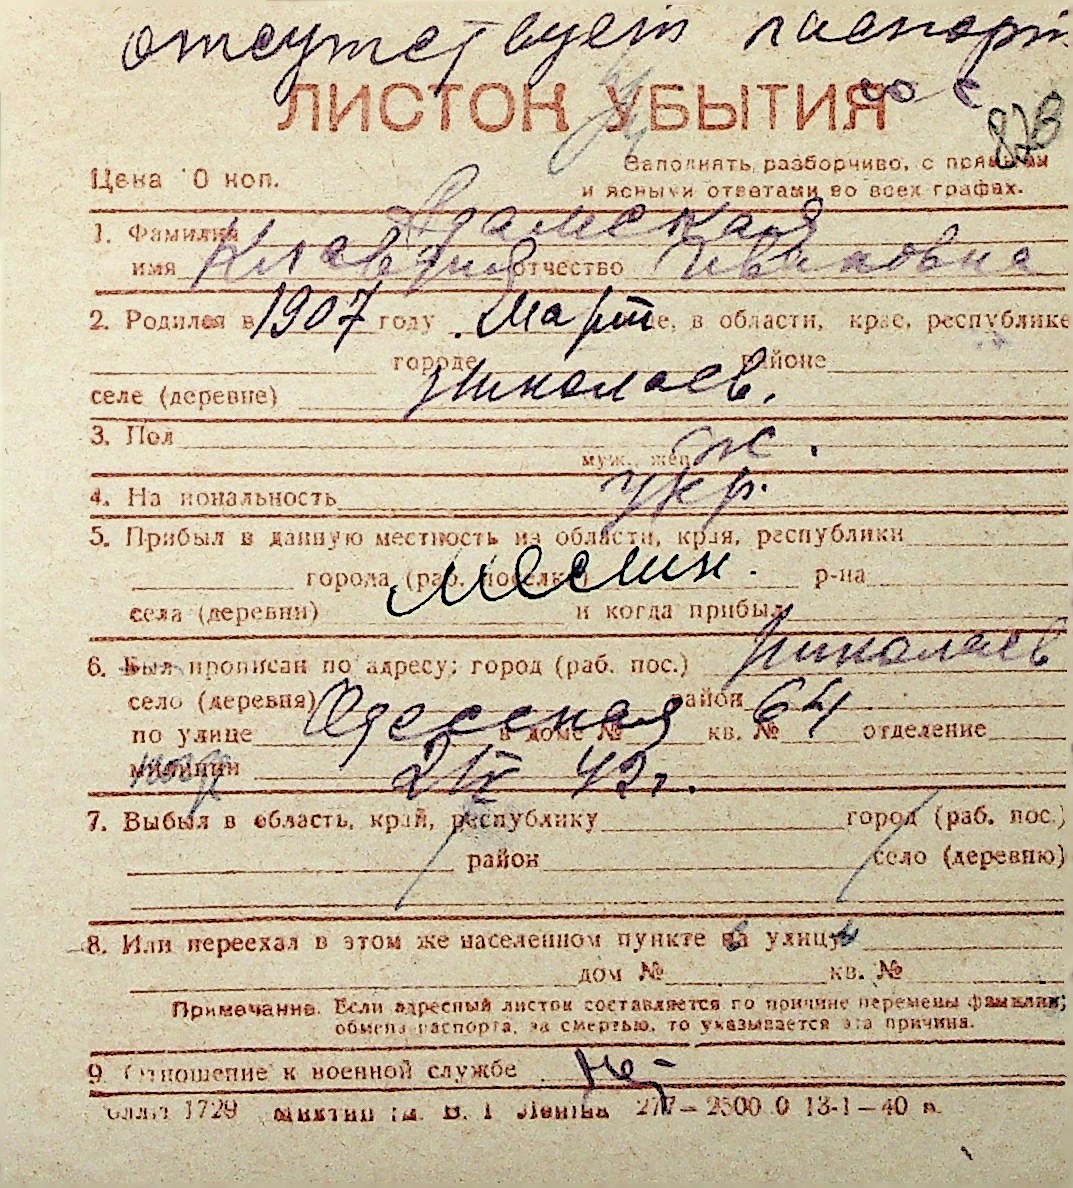 отсутствует паспорт
ЛИСТОК УБЫТИЯ
Цена 10 коп.
Заполнять разборчиво, с прямыми
и ясными ответами во всех графах.
1. Фамилия Адамская
имя Клавдия отчество Ивановна
2. Родился в 1907 году Март це, в области, крае, республике
городе районе
Николаев.
селе (деревне)
3. Пол ж.
муж. жен.
4. Национальность укр.
5. Прибыл в данную местность из области, края, республики
города (рай. поселка) местн. р-на
села (деревни) и когда прибыл
6. Был прописан по адресу: город (раб. пос.) Николаев
село (деревня) район
по улице Одесская в доме № 64 кв. № отделение
милиции 2 IV 42 г.
7. Выбыл в область, край, республику город (раб. пос.)
район село (деревню)
8. Или переехал в этом же населенном пункте на улицу
дом № кв. №
Примечание. Если адресный листок составляется по причине перемены фамилии,
обмена паспорта, за смертью, то указывается эта причина.
9. Отношение к военной службе Нет
1729 им. В. И. Ленина 277—2500.0 13-1—40 г.